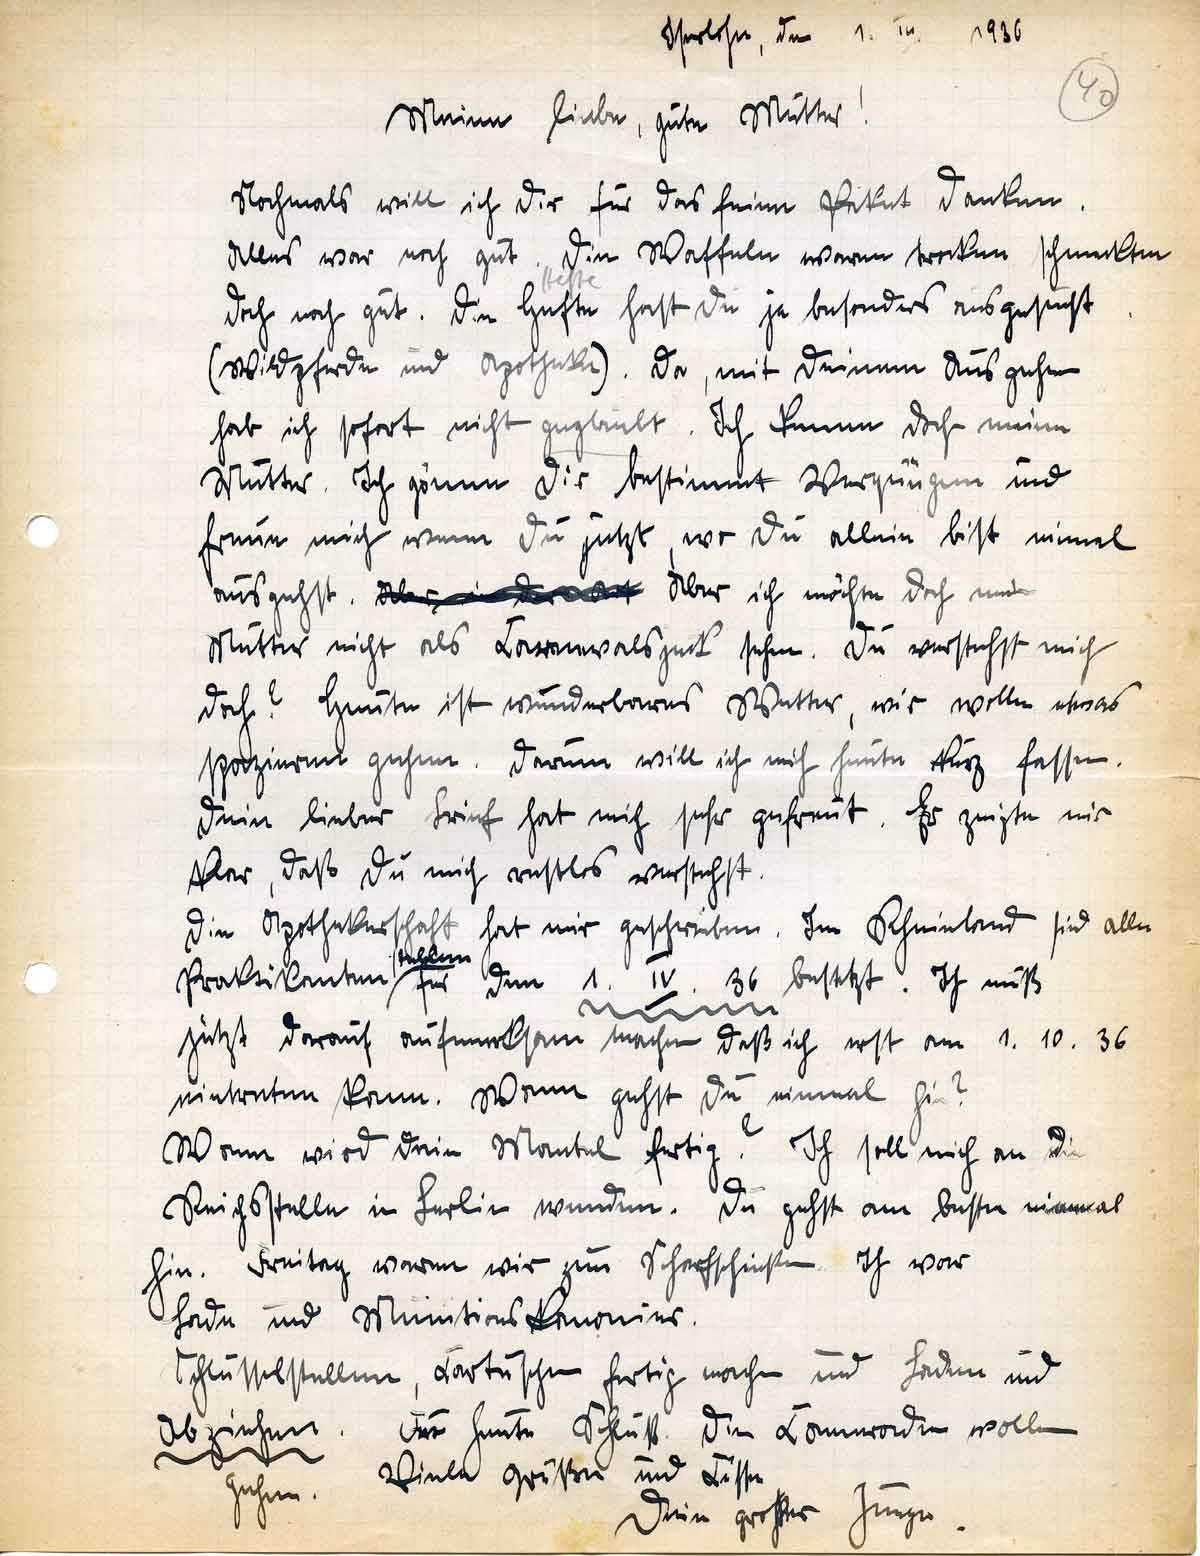 Iserlohn, den 1. III. 1936
40
Meine liebe, gute Mutter!
Nochmals will ich Dir für das feine Paket danken.
Alles war noch gut. Die Waffeln waren trocken schmeckten
Hefte
doch noch gut. Die Hefte hast Du ja besonders ausgesucht
(Wildpferde und Apotheke). Da, mit Deinem Ausgehen
hab ich sofort nicht geglaubt. Ich kenne doch meine
Mutter. Ich gönne Dir bestimmt Vergnügen und
freue mich wenn Du jetzt, wo Du allein bist einmal
ausgehst. Aber in der Art Aber ich möchte doch meine
Mutter nicht als Karnevalsjeck sehen. Du verstehst mich
doch? Heute ist wunderbares Wetter, wir wollen etwas
spazieren gehen. Darum will ich mich heute kurz fassen.
Dein lieber Brief hat mich sehr gefreut. Er zeigte mir
klar, daß Du mich restlos verstehst.
Die Apothekerschaft hat mir geschrieben. Im Rheinland sind alle
stellen
Praktikanten für den 1. IV. 36 besetzt. Ich muß
jetzt darauf aufmerksam machen daß ich erst am 1. 10. 36
eintreten kann. Wann gehst Du einmal hin?
Wann wird Dein Mantel fertig? Ich soll mich an die
Reichsstelle in Berlin wenden. Du gehst am besten einmal
hin. Freitag waren wir zum Scharfschießen. Ich war
Lade und Munitionskanonier.
Schlüsselstellen, Kartuschen fertig machen und Laden und
Abziehen. Für heute Schluß. Die Kameraden wollen
gehen. Viele Grüße und Küsse
Dein großer Junge.